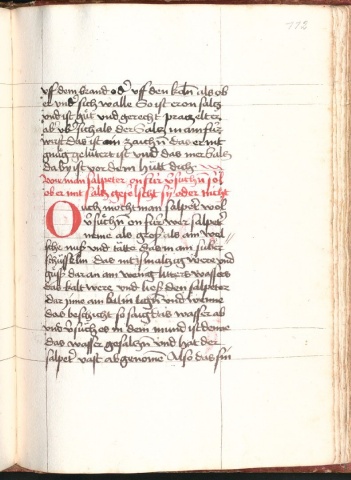 112
vff dem brand od' vff den koln als ob
er vnd sich walle So ist er on saltz
vnd ist gůt vnd gerecht
ob sich als der saltz in ain für
wirst das ist ain zaichn das er nit
gnůg gelüttert ist vnd das me saltz
da by ist vor dem hütt dich
wie man salpeter on für v'sůchn sol
ob er mit saltz gefelscht sy oder nicht
Ouch mocht man salpet' wol
v'sůchen on für wer salpet'
neme als gross als ain wel
sche nuß vnd tätte das in ain suber
schüsselin das nit schmaltzig were vnd
guß daran ain wenig litters wassers
das kalt were vnd ließ den salpeter
dar jnne ain lign vnd wenne
das beschicht so saig das wasser ab
vnd v'sůch es in dem mund ist denne
das wasser gesaltzn vnd hat der
salpet' vast abgenomē Also das sin